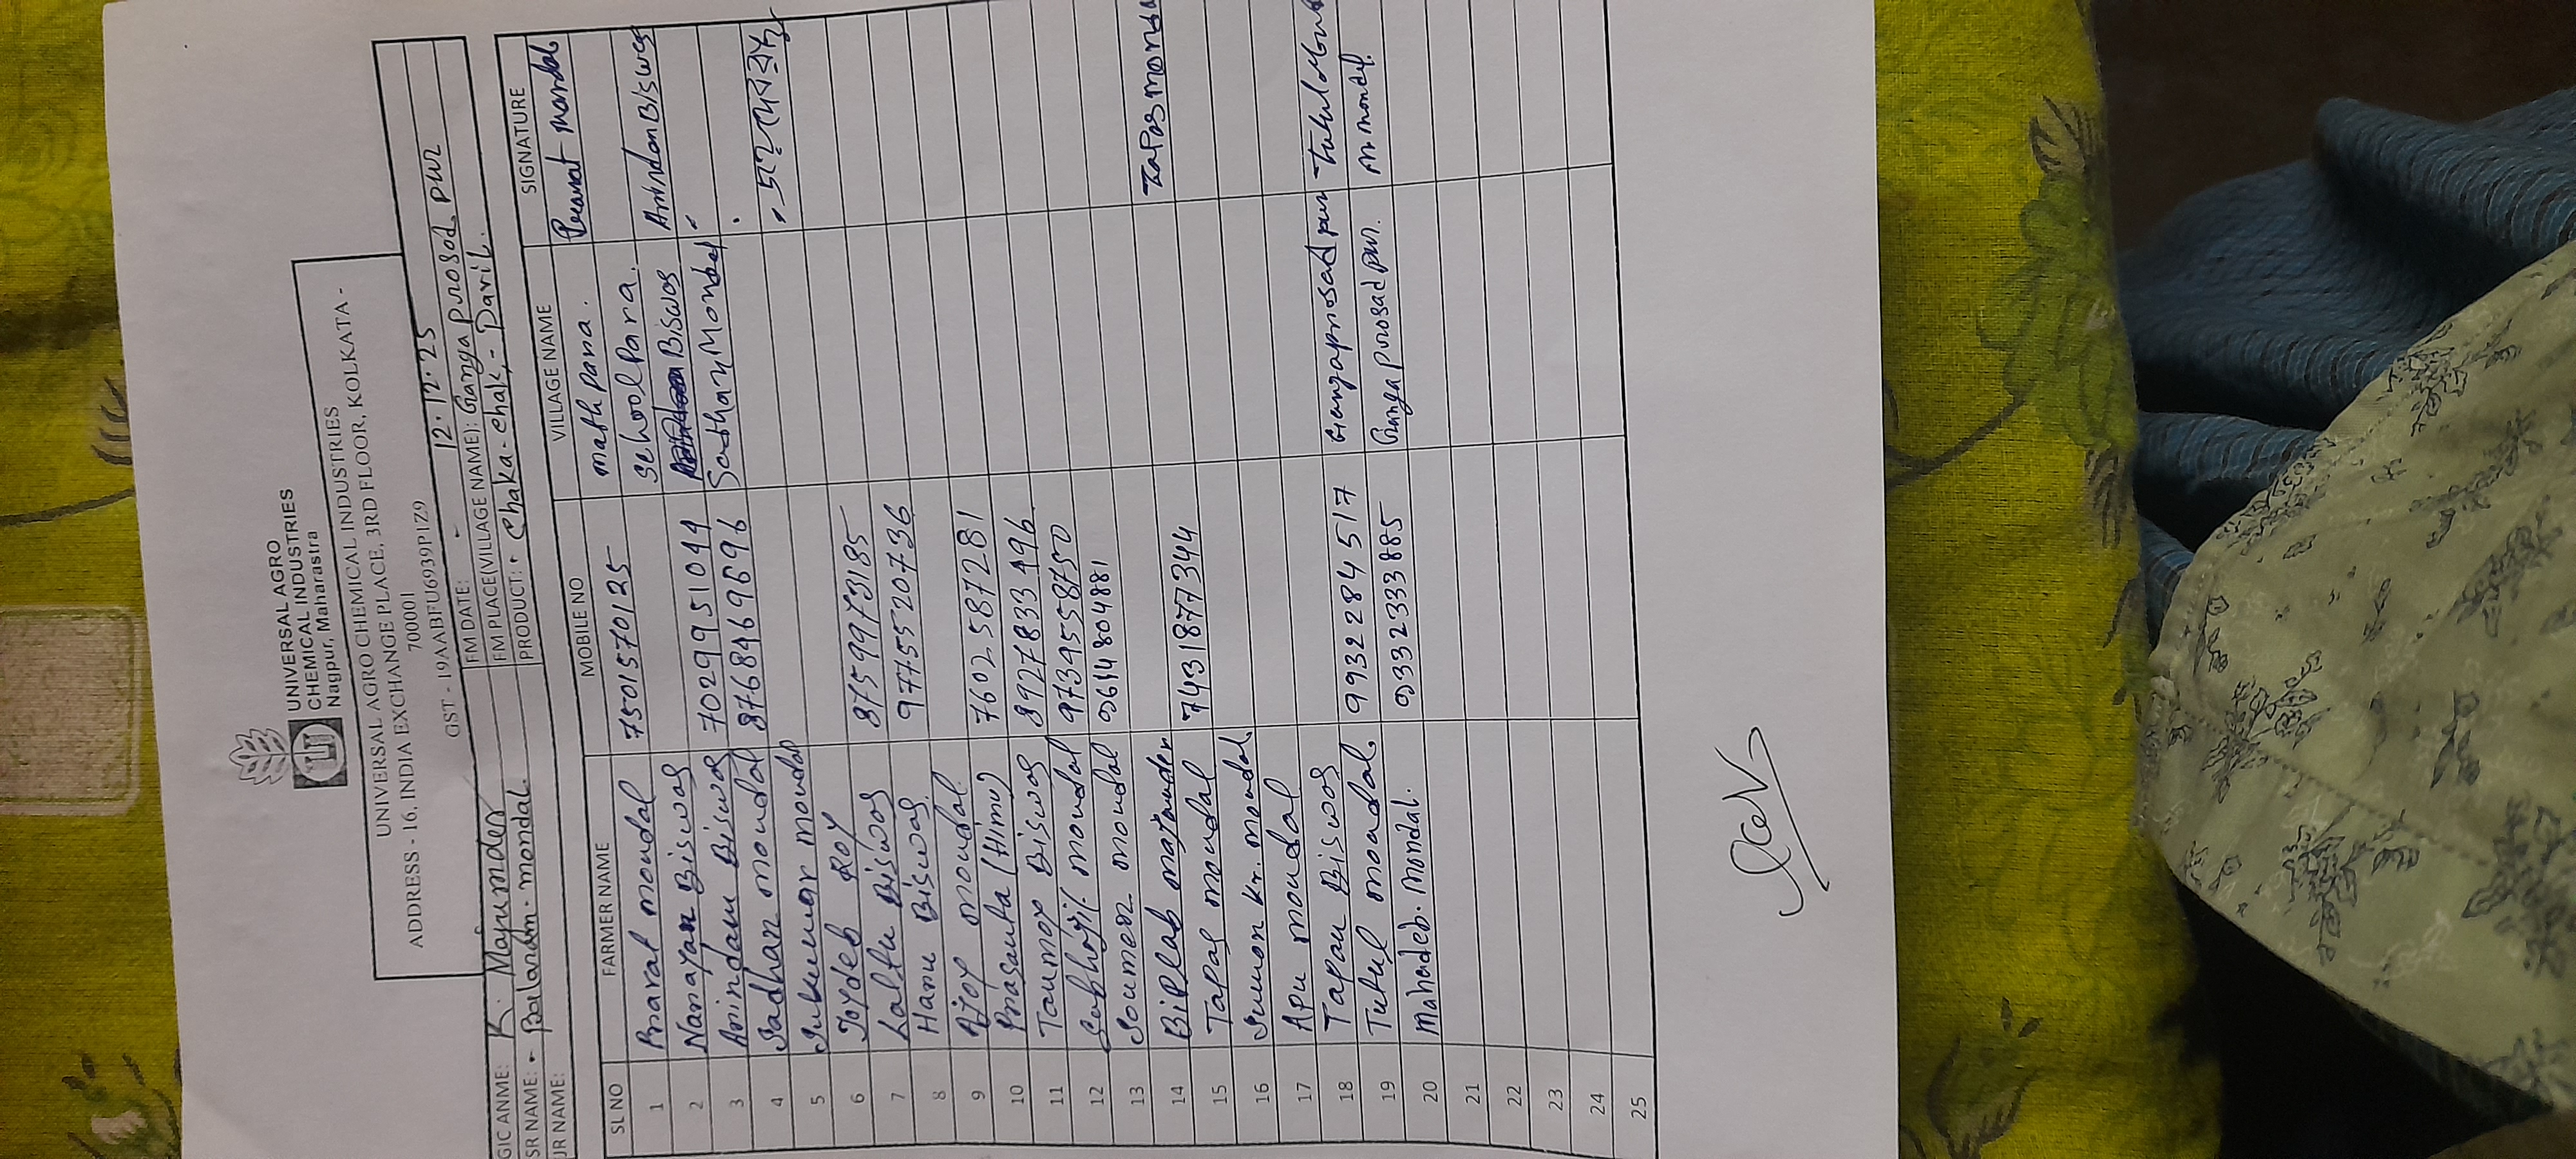 UNIVERSAL AGRO
CHEMICAL INDUSTRIES
Nagpur, Maharastra
UNIVERSAL AGRO CHEMICAL INDUSTRIES
ADDRESS - 16, INDIA EXCHANGE PLACE, 3RD FLOOR, KOLKATA -
700001
GST - 19AABFU6939P1Z9
GIC ANME: K. Majumder FM DATE: 12.12.25
SR NAME: Balaram. mondal. FM PLACE(VILLAGE NAME): Ganga prosad pur
JR NAME: PRODUCT: Chaka-Chak,- Davil.
SL NO FARMER NAME MOBILE NO VILLAGE NAME SIGNATURE
1 Pnarat mondal 7501570125 math para. Pranat mondal
2 Narayan Biswas School Para.
3 Arindam Biswas 7029951044 Biswas Arindam Biswas
4 Sadhan mondal 8768469696 Sadhan Mondal
5 Sukumar mondal
6 Joydeb Roy 8759973185
7 Laltu Biswas 9775520736
8 Haru Biswas
9 Ajoy mondal 7602587281
10 Prasanta (Himu) 8927833496
11 Tanmoy Biswas 9734558750
12 Subhojit mondal 9614804881
13 Soumen mondal
14 Biplab majumder 7431877344 Tapas mondal
15 Tapas mondal
16 Sumon kr. mondal
17 Apu mondal
18 Tapan Biswas 9932284517 Gangaprosad pur Tutul
19 Tutul mondal 9332333885 Ganga prosad pur. M. mondal
20 Mahadeb. Mondal.
21
22
23
24
25